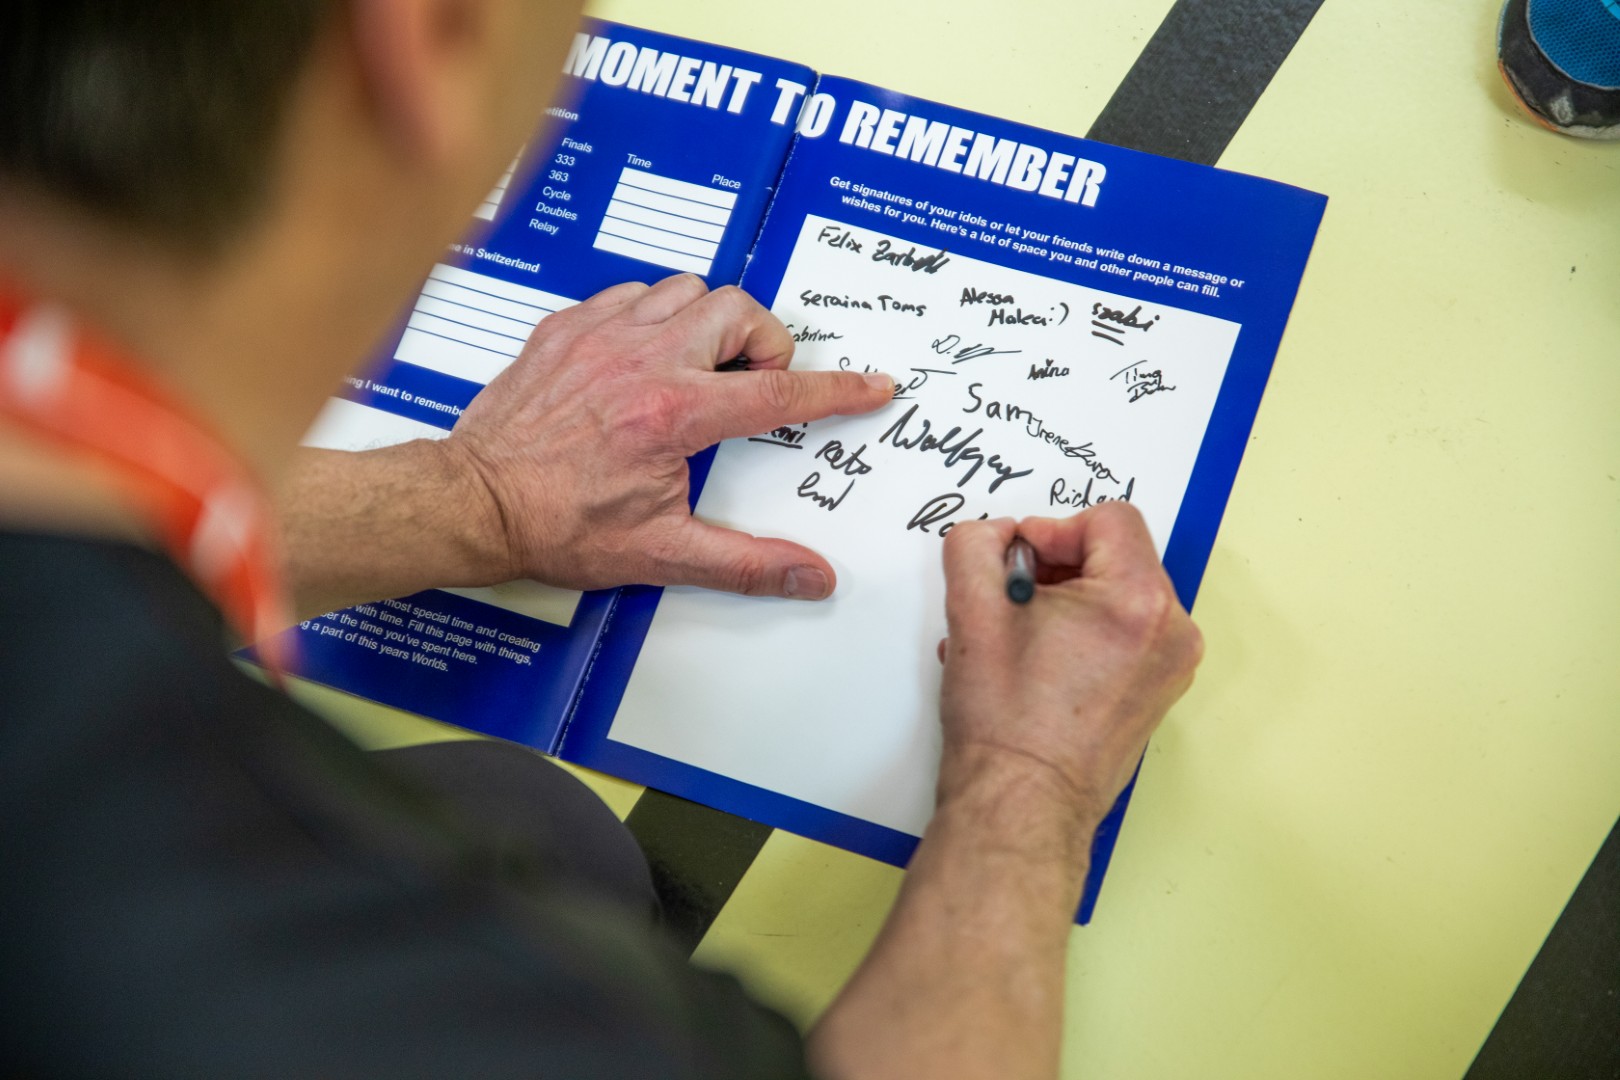 MOMENT TO REMEMBER
Finals
333
363
Cycle
Doubles
Relay
Time
Place
in Switzerland
I want to
most special time and creating
with time. Fill this page with things,
the time you've spent here.
a part of this years Worlds.
Get signatures of your idols or let your friends write down a message or
wishes for you. Here's a lot of space you and other people can fill.
Felix
Seraina Toms
Alessa
:)
Szabi
Sabrina
Anina
Sam
Irene
Wolfgang
Reto
Richard